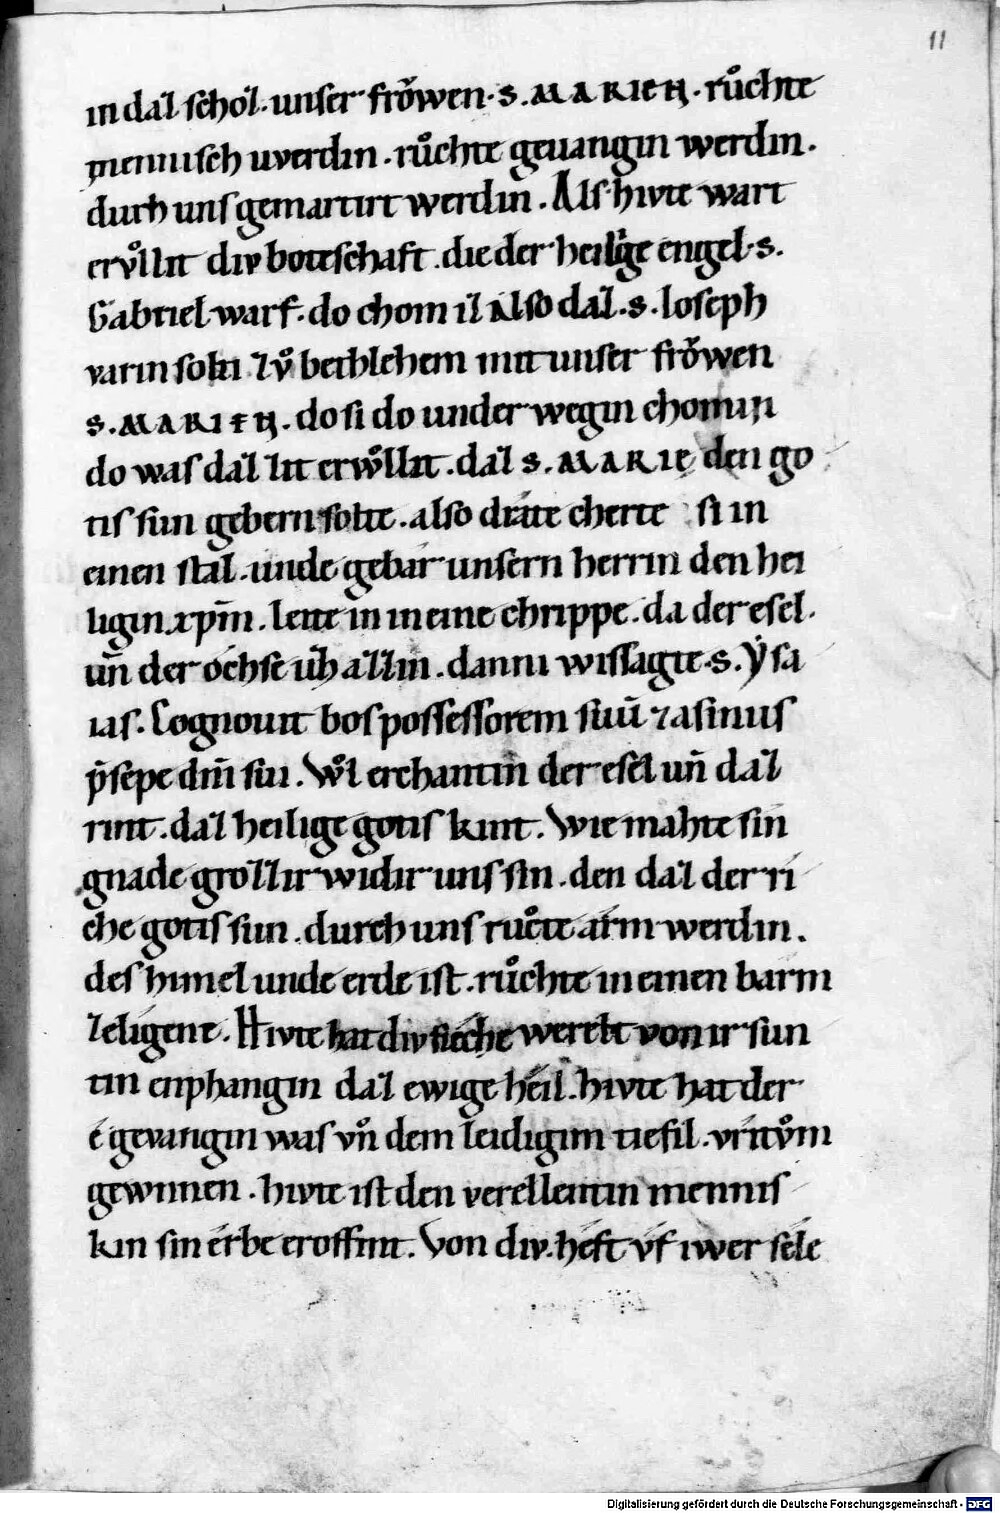 11
in daz schoz. unser frǒwen. S. MARIEN. růchte
mennisch uverdin. růchte geuangin werdin.
durh uns gemartirt werdin. Als hivte wart
ervůllit div boteschaft. die der heilige engel. S.
Gabriel warf. do chom iz also daz. S. Ioseph
varin solti zů bethlehem mit unser frǒwen
S. MARIEN. do si do under wegin chomin
do was daz zit erwͦllit. daz S. MARIE den go
tis sun gebern solte. also dráte cherte si in
einen stal. unde gebar unsern herrin den hei
ligin xp̄m. leite in in eine chrippe. da der esel.
uñ der ochse uz azzin. danni wissagte. S. Ẏsa
ias. Cognouit bos possessorem suū ⁊ asinus
p̄sepe dñi sui. Wͦl erchantin der esel uñ daz
rint. daz heilige gotis kint. Wie mahte sin
gnade grozzir widir uns sin. den daz der ri
che gotis sun. durch uns růcte arm werdin.
des himel unde erde ist. růchte in einen barm
ze ligene. Hivte hat div sieche werelt von ir sun
tin enphangin daz ewige heil. hivte hat der
é gevangin was vͦn dem leidigim tiefil. vrítům
gewnnen. hivte ist den verellentin mennis
kin sin erbe eroffint. Von div. heft vf iwer sele
Digitalisierung gefördert durch die Deutsche Forschungsgemeinschaft - DFG